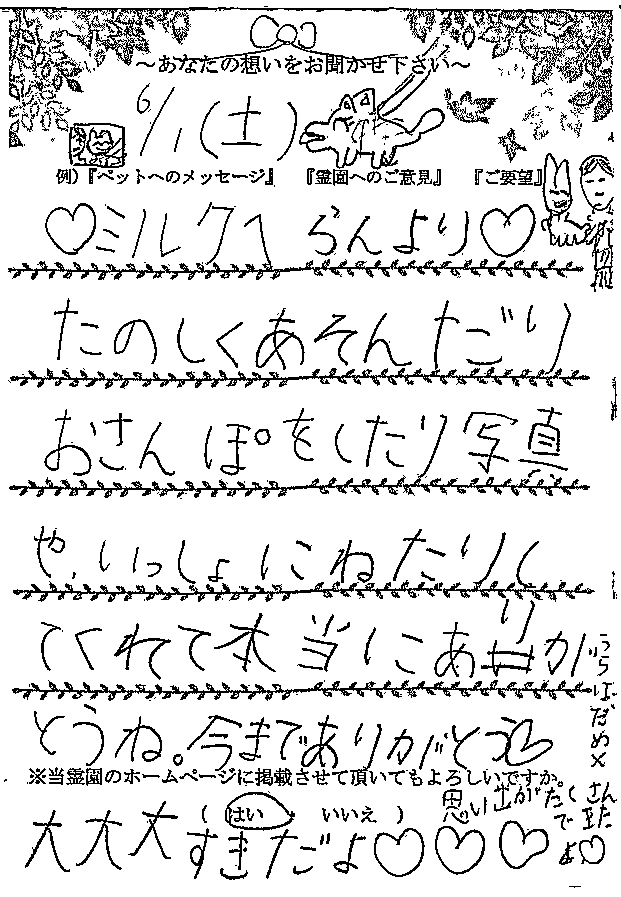 ～あなたの想いをお聞かせ下さい～
6/1(土)
例）『ペットへのメッセージ』　『霊園へのご意見』　『ご要望』
♡ミルクへ らんより♡
たのしくあそんだり
おさんぽをしたり写真
や、いっしょにねたりし
てくれて本当にありが
とうね。今までありがとう
うらはだめ×
※当霊園のホームページに掲載させて頂いてもよろしいですか。
（　はい　・　いいえ　）
思い出がたくさん
できたよ♡
大大大すきだよ♡♡♡